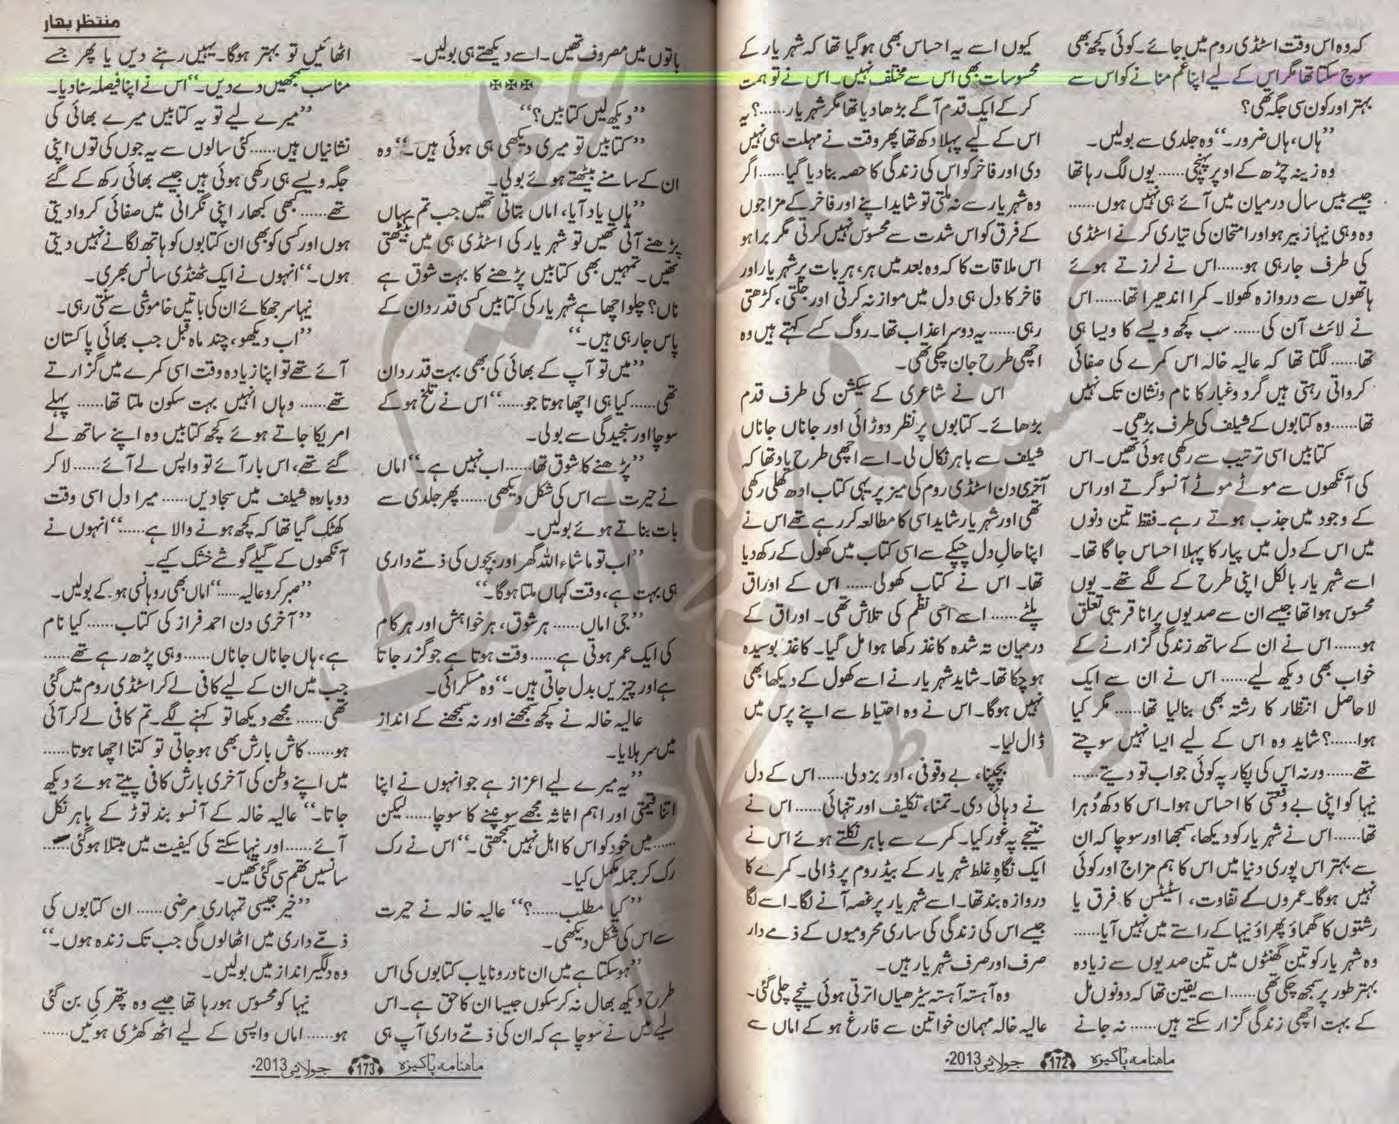 کہ وہ اس وقت اسٹڈی روم میں جائے۔ کوئی کچھ بھی
سوچ سکتا تھا مگر اس کے لیے اپنا غم منانے کو اس سے
بہتر اور کون سی جگہ تھی؟
”ہاں، ہاں ضرور۔“ وہ جلدی سے بولیں۔
وہ زینہ چڑھ کے اوپر پہنچی...... یوں لگ رہا تھا
جیسے بیس سال درمیان میں آئے ہی نہیں ہوں......
وہ وہی نیہا زبیر ہو اور امتحان کی تیاری کرنے اسٹڈی
کی طرف جا رہی ہو...... اس نے لرزتے ہوئے
ہاتھوں سے دروازہ کھولا۔ کمرا اندھیرا تھا...... اس
نے لائٹ آن کی...... سب کچھ ویسے کا ویسا ہی
تھا...... لگتا تھا کہ عالیہ خالہ اس کمرے کی صفائی
کرواتی رہتی ہیں گرد و غبار کا نام و نشان تک نہیں
تھا...... وہ کتابوں کے شیلف کی طرف بڑھی۔
کتابیں اسی ترتیب سے رکھی ہوئی تھیں۔ اس
کی آنکھوں سے موٹے موٹے آنسو گرتے اور اس
کے وجود میں جذب ہوتے رہے۔ فقط تین دنوں
میں اس کے دل میں پیار کا پہلا احساس جاگا تھا۔
اسے شہریار بالکل اپنی طرح کے لگے تھے۔ یوں
محسوس ہوا تھا جیسے ان سے صدیوں پرانا قریبی تعلق
ہو...... اس نے ان کے ساتھ زندگی گزارنے کے
خواب بھی دیکھ لیے...... اس نے ان سے ایک
لاحاصل انتظار کا رشتہ بھی بنا لیا تھا...... مگر کیا
ہوا......؟ شاید وہ اس کے لیے ایسا نہیں سوچتے
تھے...... ورنہ اس کی پکار پہ کوئی جواب تو دیتے......
نیہا کو اپنی بے وقعتی کا احساس ہوا۔ اس کا دکھ دُہرا
تھا...... اس نے شہریار کو دیکھا، سمجھا اور سوچا کہ ان
سے بہتر اس پوری دنیا میں اس کا ہم مزاج اور کوئی
نہیں ہوگا۔ عمروں کے تفاوت، اسٹیٹس کا فرق یا
رشتوں کا گھماؤ پھراؤ نیہا کے راستے میں نہیں آیا......
وہ شہریار کو تین گھنٹوں میں تین صدیوں سے زیادہ
بہتر طور پر سمجھ چکی تھی...... اسے یقین تھا کہ دونوں مل
کے بہت اچھی زندگی گزار سکتے ہیں...... نہ جانے
کیوں اسے یہ احساس بھی ہو گیا تھا کہ شہریار کے
محسوسات بھی اس سے مختلف نہیں۔ اس نے تو ہمت
کر کے ایک قدم آگے بڑھا دیا تھا مگر شہریار......؟ یہ
اس کے لیے پہلا دکھ تھا پھر وقت نے مہلت ہی نہیں
دی اور فاخر کو اس کی زندگی کا حصہ بنا دیا گیا...... اگر
وہ شہریار سے نہ ملتی تو شاید اپنے اور فاخر کے مزاجوں
کے فرق کو اس شدت سے محسوس نہیں کرتی مگر برا ہو
اس ملاقات کا کہ وہ بعد میں ہر، ہر بات پر شہریار اور
فاخر کا دل ہی دل میں موازنہ کرتی اور جلتی، کڑھتی
رہی...... یہ دوسرا عذاب تھا۔ روگ کسے کہتے ہیں وہ
اچھی طرح جان چکی تھی۔
اس نے شاعری کے سیکشن کی طرف قدم
بڑھائے۔ کتابوں پر نظر دوڑائی اور جاناں جاناں
شیلف سے باہر نکال لی۔ اسے اچھی طرح یاد تھا کہ
آخری دن اسٹڈی روم کی میز پر یہی کتاب ادھ کھلی رکھی
تھی اور شہریار شاید اسی کا مطالعہ کر رہے تھے اس نے
اپنا حالِ دل چپکے سے اسی کتاب میں کھول کے رکھ دیا
تھا۔ اس نے کتاب کھولی...... اس کے اوراق
پلٹے...... اسے اسی نظم کی تلاش تھی۔ اوراق کے
درمیان تہ شدہ کاغذ رکھا ہوا مل گیا۔ کاغذ بوسیدہ
ہو چکا تھا۔ شاید شہریار نے اسے کھول کے دیکھا بھی
نہیں ہوگا۔ اس نے وہ احتیاط سے اپنے پرس میں
ڈال لیا۔
بچپنا، بے وقوفی، اور بزدلی...... اس کے دل
نے دہائی دی۔ تمنا، تکلیف اور تنہائی...... اس نے
نتیجے پہ غور کیا۔ کمرے سے باہر نکلتے ہوئے اس نے
ایک نگاہِ غلط شہریار کے بیڈ روم پر ڈالی۔ کمرے کا
دروازہ بند تھا۔ اسے شہریار پر غصہ آنے لگا۔ اسے لگا
جیسے اس کی زندگی کی ساری محرومیوں کے ذمے دار
صرف اور صرف شہریار ہیں۔
وہ آہستہ آہستہ سیڑھیاں اترتی ہوئی نیچے چلی گئی۔
عالیہ خالہ مہمان خواتین سے فارغ ہو کے اماں سے
ماہنامہ پاکیزہ 172 جولائی 2013ء
منتظر بہار
باتوں میں مصروف تھیں۔ اسے دیکھتے ہی بولیں۔
✠✠✠
”دیکھ لیں کتابیں؟“
”کتابیں تو میری دیکھی ہی ہوئی ہیں۔“ وہ
ان کے سامنے بیٹھتے ہوئے بولی۔
”ہاں یاد آیا، اماں بتاتی تھیں جب تم یہاں
پڑھنے آتی تھیں تو شہریار کی اسٹڈی ہی میں بیٹھتی
تھیں۔ تمہیں بھی کتابیں پڑھنے کا بہت شوق ہے
ناں؟ چلو اچھا ہے شہریار کی کتابیں کسی قدردان کے
پاس جا رہی ہیں۔“
”میں تو آپ کے بھائی کی بھی بہت قدردان
تھی...... کیا ہی اچھا ہوتا جو......“ اس نے تلخ ہو کے
سوچا اور سنجیدگی سے بولی۔
”پڑھنے کا شوق تھا...... اب نہیں ہے۔“ اماں
نے حیرت سے اس کی شکل دیکھی...... پھر جلدی سے
بات بناتے ہوئے بولیں۔
”اب تو ماشاء اللہ گھر اور بچوں کی ذمے داری
ہی بہت ہے، وقت کہاں ملتا ہوگا۔“
”جی اماں...... ہر شوق، ہر خواہش اور ہر کام
کی ایک عمر ہوتی ہے...... وقت ہوتا ہے جو گزر جاتا
ہے اور چیزیں بدل جاتی ہیں۔“ وہ مسکرائی۔
عالیہ خالہ نے کچھ سمجھنے اور نہ سمجھنے کے انداز
میں سر ہلایا۔
”یہ میرے لیے اعزاز ہے جو انہوں نے اپنا
اتنا قیمتی اور اہم اثاثہ مجھے سونپنے کا سوچا...... لیکن
...... میں خود کو اس کا اہل نہیں سمجھتی۔“ اس نے رک
رک کر جملہ مکمل کیا۔
”کیا مطلب......؟“ عالیہ خالہ نے حیرت
سے اس کی شکل دیکھی۔
”ہو سکتا ہے میں ان نادر و نایاب کتابوں کی اس
طرح دیکھ بھال نہ کر سکوں جیسا ان کا حق ہے۔ اس
لیے میں نے سوچا ہے کہ ان کی ذمے داری آپ ہی
اٹھائیں تو بہتر ہوگا۔ یہیں رہنے دیں یا پھر جسے
مناسب سمجھیں دے دیں۔“ اس نے اپنا فیصلہ سنا دیا۔
”میرے لیے تو یہ کتابیں میرے بھائی کی
نشانیاں ہیں...... کئی سالوں سے یہ جوں کی توں اپنی
جگہ ویسے ہی رکھی ہوئی ہیں جیسے بھائی رکھ کے گئے
تھے...... کبھی کبھار اپنی نگرانی میں صفائی کروا دیتی
ہوں اور کسی کو بھی ان کتابوں کو ہاتھ لگانے نہیں دیتی
ہوں۔“ انہوں نے ایک ٹھنڈی سانس بھری۔
نیہا سر جھکائے ان کی باتیں خاموشی سے سنتی رہی۔
”اب دیکھو، چند ماہ قبل جب بھائی پاکستان
آئے تھے تو اپنا زیادہ وقت اسی کمرے میں گزارتے
تھے...... وہاں انہیں بہت سکون ملتا تھا...... پہلے
امریکا جاتے ہوئے کچھ کتابیں وہ اپنے ساتھ لے
گئے تھے، اس بار آئے تو واپس لے آئے...... لا کر
دوبارہ شیلف میں سجا دیں...... میرا دل اسی وقت
کھٹک گیا تھا کہ کچھ ہونے والا ہے......“ انہوں نے
آنکھوں کے گیلے گوشے خشک کیے۔
”صبر کرو عالیہ......“ اماں بھی روہانسی ہو کے بولیں۔
”آخری دن احمد فراز کی کتاب...... کیا نام
ہے، ہاں جاناں جاناں...... وہی پڑھ رہے تھے......
جب میں ان کے لیے کافی لے کر اسٹڈی روم میں گئی
تھی...... مجھے دیکھا تو کہنے لگے۔ تم کافی لے کر آئی
ہو...... کاش بارش بھی ہو جاتی تو کتنا اچھا ہوتا......
میں اپنے وطن کی آخری بارش کافی پیتے ہوئے دیکھ
جاتا۔“ عالیہ خالہ کے آنسو بند توڑ کے باہر نکل
آئے...... اور نیہا سکتے کی کیفیت میں مبتلا ہو گئی......
سانسیں تھم سی گئی تھیں۔
”خیر جیسی تمہاری مرضی...... ان کتابوں کی
ذمے داری میں اٹھا لوں گی جب تک زندہ ہوں۔“
وہ دلگیر انداز میں بولیں۔
نیہا کو محسوس ہو رہا تھا جیسے وہ پتھر کی بن گئی
ہو...... اماں واپسی کے لیے اٹھ کھڑی ہوئیں......
ماہنامہ پاکیزہ 173 جولائی 2013ء